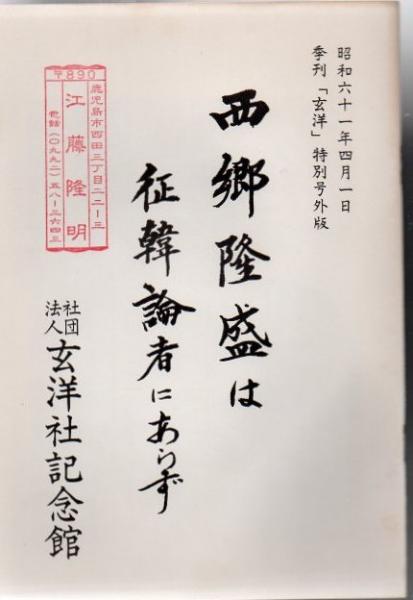 昭和六十一年四月一日
季刊「玄洋」特別号外版
西郷隆盛は
征韓論者にあらず
〒890
鹿児島市西田三丁目二二ー三
江藤隆明
電話(〇九九二)五八ー三六四三
社団法人 玄洋社記念館